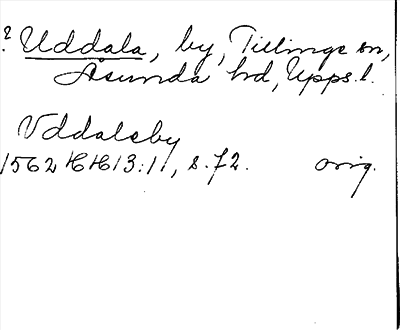 ? Uddala, by, Tillinge sn,
Åsunda hd, Upps. l.
Vddalsby
1562 HH 13:11, s. 72. orig.